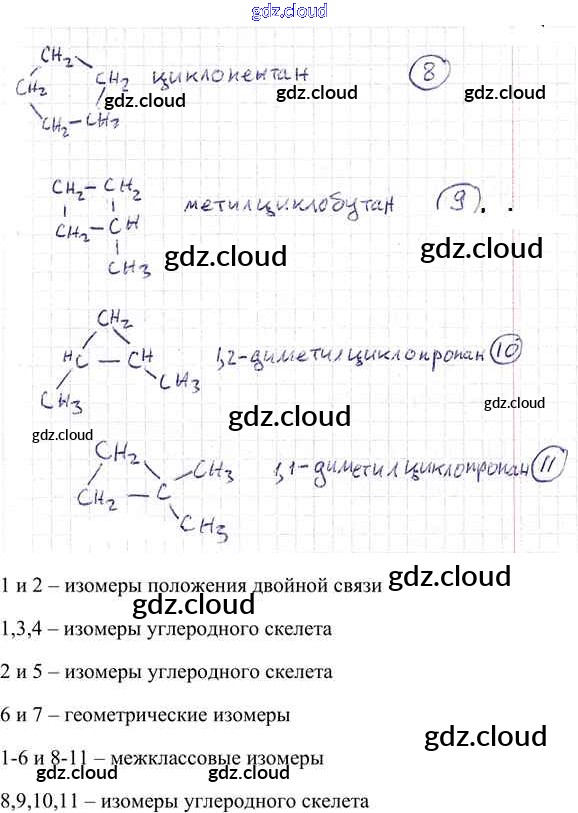 gdz.cloud
CH₂
CH₂ CH₂ циклопентан 8
CH₂ – CH₂
gdz.cloud gdz.cloud gdz.cloud
CH₂ – CH₂
CH₂ – CH метилциклобутан 9
CH₃
gdz.cloud gdz.cloud
CH₂
HC – CH 1,2-диметилциклопропан 10
CH₃ CH₃
gdz.cloud gdz.cloud gdz.cloud
CH₂ CH₃
CH₂ – C 1,1-диметилциклопропан 11
CH₃
gdz.cloud gdz.cloud
1 и 2 – изомеры положения двойной связи
gdz.cloud
gdz.cloud
1,3,4 – изомеры углеродного скелета
gdz.cloud
2 и 5 – изомеры углеродного скелета
gdz.cloud
6 и 7 – геометрические изомеры
gdz.cloud
1-6 и 8-11 – межклассовые изомеры
gdz.cloud gdz.cloud gdz.cloud
8,9,10,11 – изомеры углеродного скелета